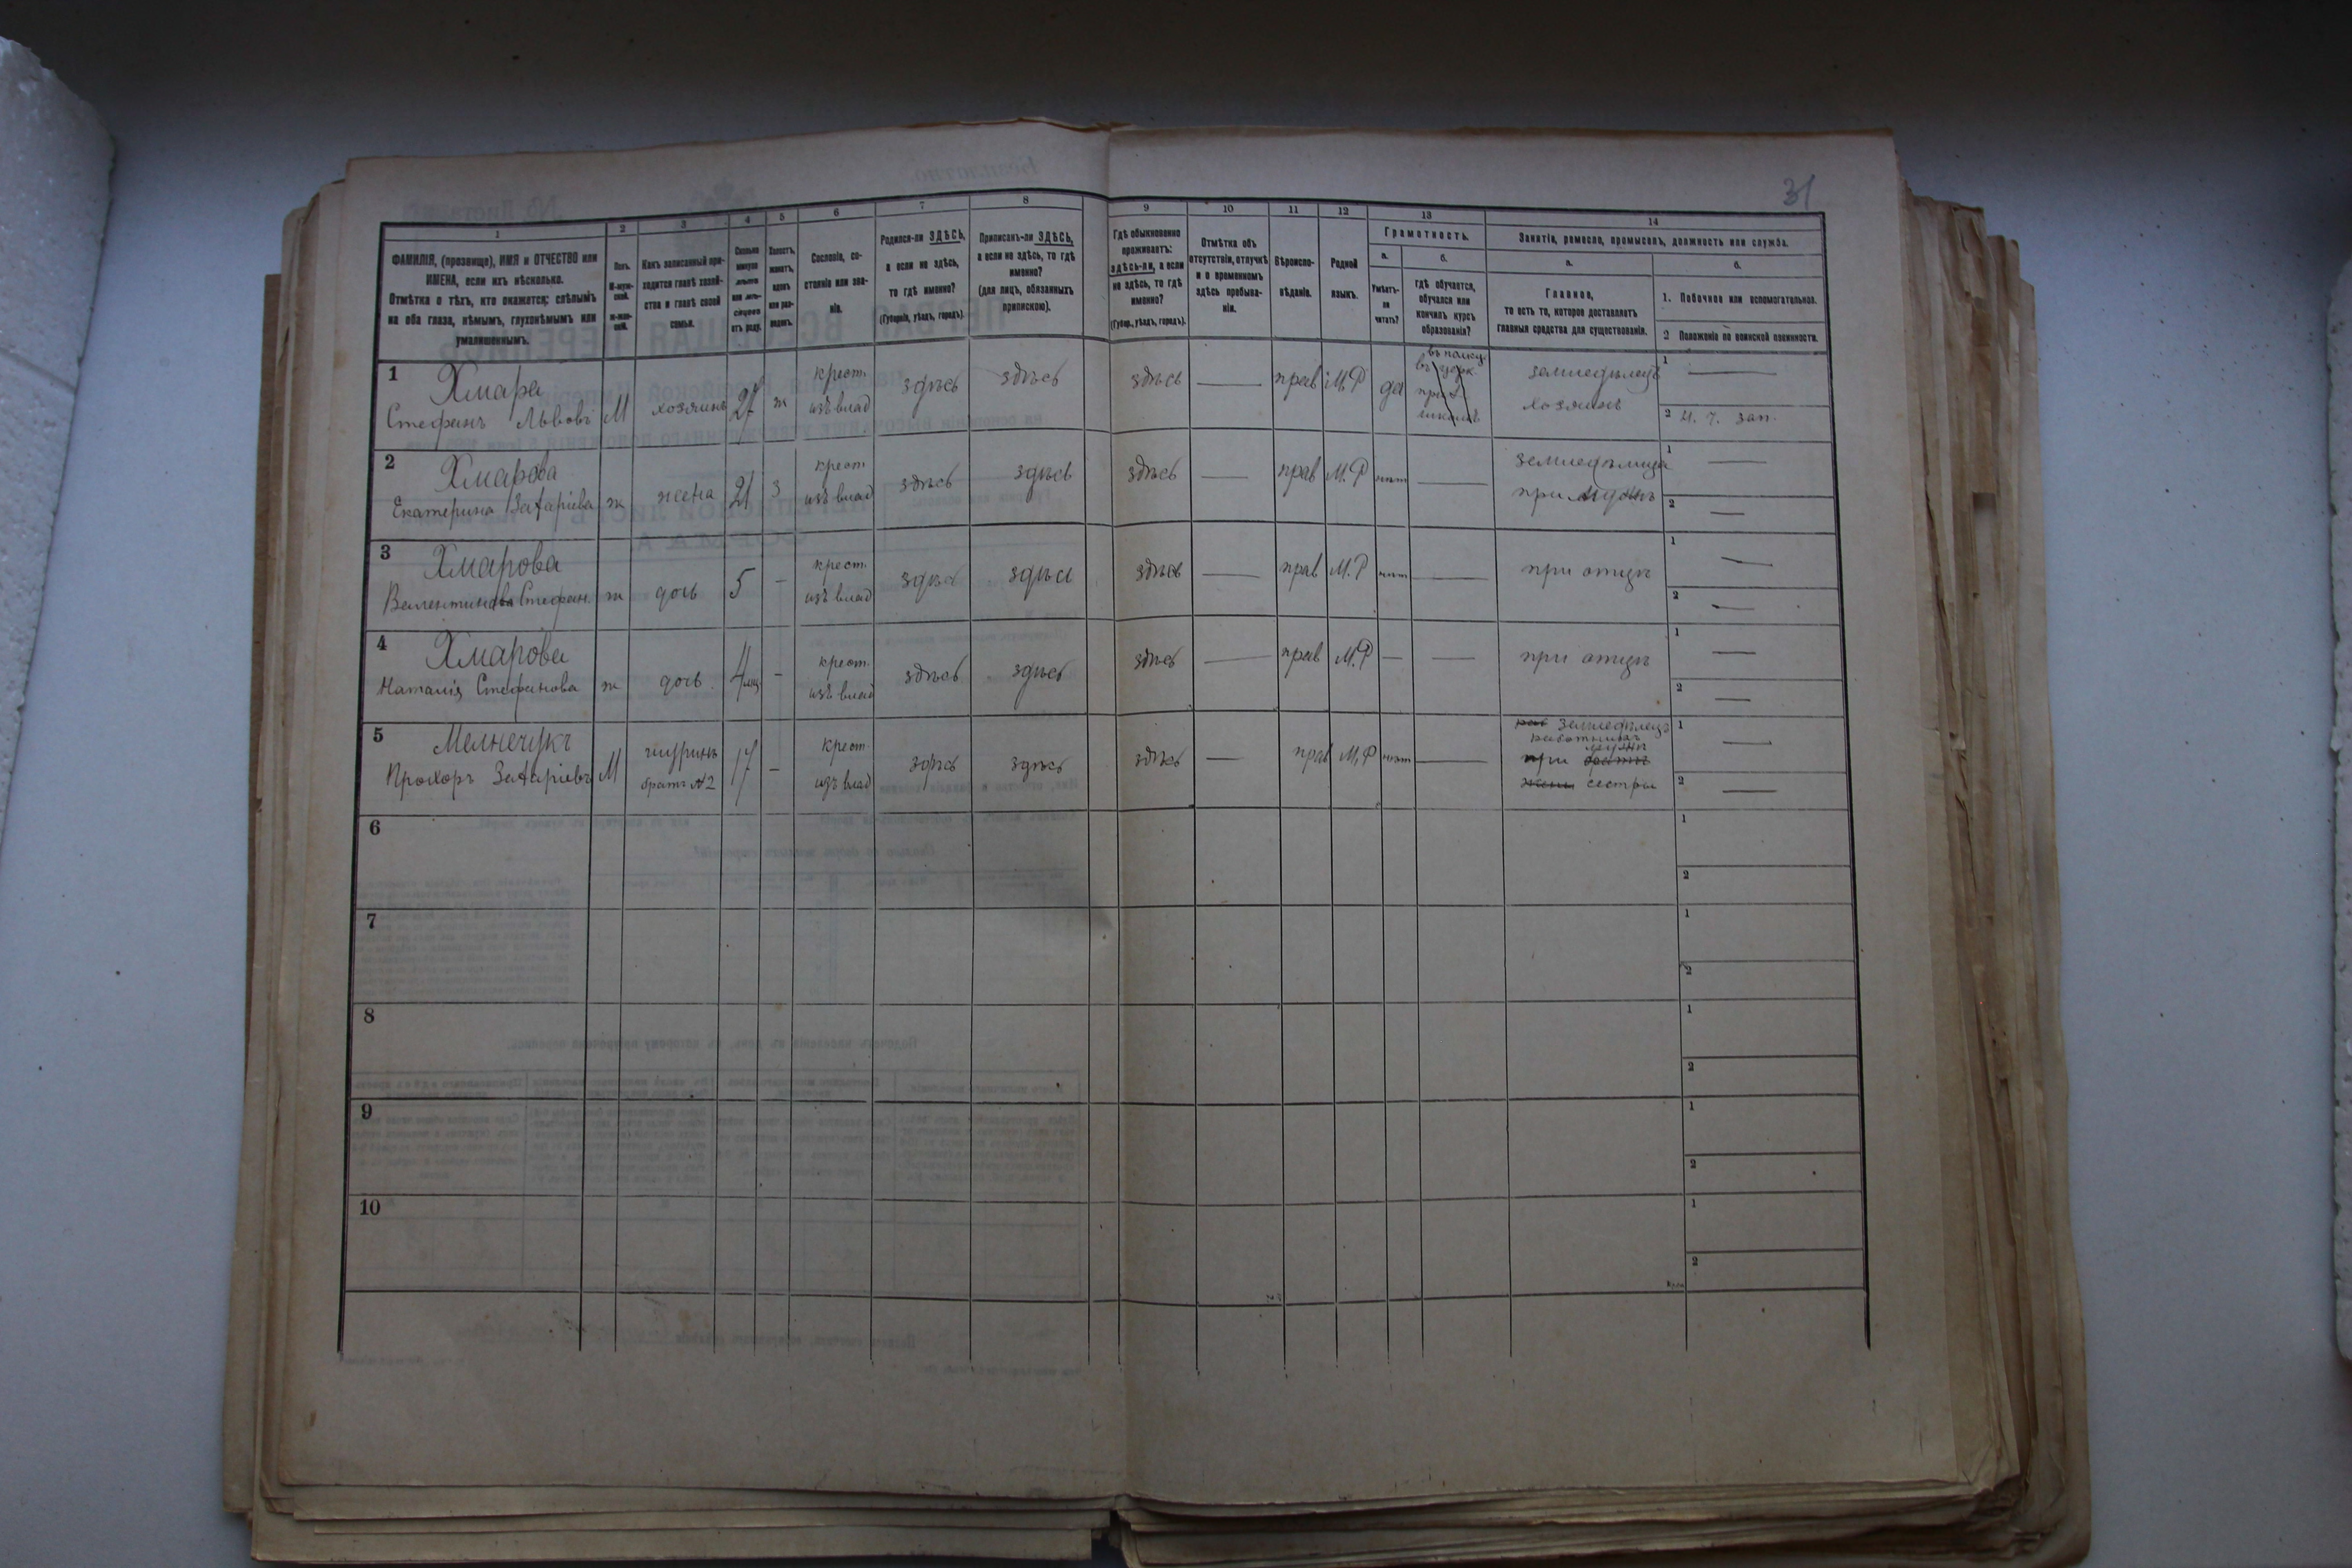 31
1 2 3 4 5 6 7 8 9 10 11 12 13 14
ФАМИЛІЯ, (прозвище), ИМЯ и ОТЧЕСТВО или
ИМЕНА, если ихъ нѣсколько.
Отмѣтка о тѣхъ, кто окажется: слѣпымъ
на оба глаза, нѣмымъ, глухонѣмымъ или
умалишеннымъ.
Полъ.
М-муж-
ской.
ж-жен-
скій.
Какъ записанный при-
ходится главѣ хозяй-
ства и главѣ своей
семьи.
Сколько
минуло
лѣтъ
или мѣ-
сяцевъ
отъ роду.
Холостъ,
женатъ,
вдовъ
или раз-
веденъ.
Сословіе, со-
стояніе или зва-
ніе.
Родился-ли ЗДѢСЬ,
а если не здѣсь,
то гдѣ именно?
(Губернія, уѣздъ, городъ).
Приписанъ-ли ЗДѢСЬ,
а если не здѣсь, то гдѣ
именно?
(для лицъ, обязанныхъ
припискою).
Гдѣ обыкновенно
проживаетъ:
здѣсь-ли, а если
не здѣсь, то гдѣ
именно?
(Губер., уѣздъ, городъ).
Отмѣтка объ
отсутствіи, отлучкѣ
и о временномъ
здѣсь пребыва-
ніи.
Вѣроиспо-
вѣданіе.
Родной
языкъ.
Грамотность.
а.
Умѣетъ-
ли
читать?
б.
гдѣ обучается,
обучался или
кончилъ курсъ
образованія?
Занятіе, ремесло, промыселъ, должность или служба.
а.
Главное,
то есть то, которое доставляетъ
главныя средства для существованія.
б.
1. Побочное или вспомогательное.
2 Положеніе по воинской повинности.
1 Хмара
Стефанъ Львовъ М хозяинъ 27 ж
крест.
изъ влад
здѣсь здѣсь здѣсь — прав М.Р да
въ полку
школѣ
земледѣлецъ
хозяинъ
1 —
2 4. 7. зап.
2 Хмарова
Екатерина Захаріева ж жена 21 з
крест
изъ влад
здѣсь здѣсь здѣсь — прав М.Р нѣт —
земледѣлица
при мужѣ
1 —
2 —
3 Хмарова
Валентина Стефан. ж дочь 5 —
крест.
изъ влад
здѣсь здѣсь здѣсь — прав М.Р нѣт —
при отцѣ
1 —
2 —
4 Хмарова
Наталія Стефанова ж дочь 4 мц —
крест.
изъ влад
здѣсь здѣсь здѣсь — прав М.Р — —
при отцѣ
1 —
2 —
5 Мелнечукъ
Прохоръ Захаріевъ М
шуринъ
братъ №2
17 —
крест.
изъ влад
здѣсь здѣсь здѣсь — прав М,Р нѣт —
раб земледѣлецъ
работникъ
мужѣ
при братѣ
жены сестры
1 —
2 —
6
1
2
7
1
2
8
1
2
9
1
2
10
1
2